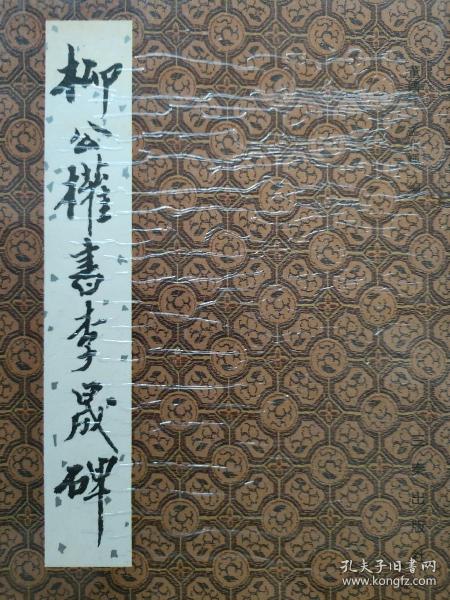 柳公權書李晟碑
三秦出版
孔夫子旧书网
www.kongfz.com